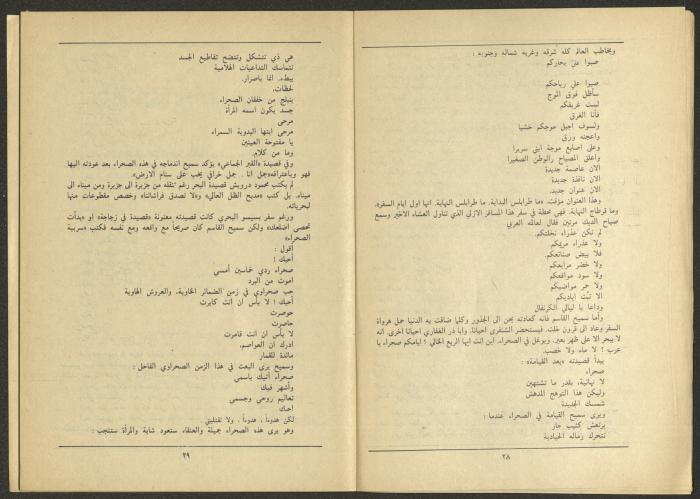 ويخاطب العالم كله شرقه وغربه شماله وجنوبه :
صبوا علي بحاركم
صبوا علي رياحكم
سأظل فوق الموج
لست غريقكم
فأنا الغرق
ولسوف اجبل موجكم خشبا
واعجنه ورق
وعلى اصابع موجة ابني سريرا
واعلق المصباح والوطن الصغيرا
الان عاصمة جديدة
الان نافذة جديدة
الان عنوان جديد.
وهذا العنوان مؤقت، «ما طرابلس البداية، ما طرابلس النهاية. انها اول ايام السفر».
وما قرطاج النهاية، فهي محطة في سفر هذا المسافر الازلي الذي تناول العشاء الاخير وسمع
صياح الديك مرتين فقال لعالمه العربي
لم تكن عذراء نخلتكم.
ولا عذراء مريمكم
فلا بيض صنائعكم.
ولا خضر مرابعكم
ولا سود مواقعكم
ولا حمر مواضيكم
الا تبت اياديكم
وداعا يا ليالي الكرنفال
وأما سميح القاسم فانه كعادته يحن الى الجذور وكلما ضاقت به الدنيا حمل هرواة
السفر وعاد الى قرون خلت، فيستحضر الشنفرى احيانا، وابا ذر الغفاري احيانا اخرى. أنه
لا يبحر الا على ظهر بعير. ويوغل في الصحراء. اين انت ايها الربع الخالي ؟ ايامكم صحراء يا
عرب ! لا ماء ولا خصب.
يبدأ قصيدته «بعد القيامة» :
صحراء
لا نهائية، بقدر ما تشتهين
وليكن هذا التوهج المدهش
شمسك الجديدة
ويرى سميح القيامة في الصحراء عندما :
يرتعش كثيب حار
تتحرك رماله الحيادية
٢٨
هي ذي تتشكل وتتضح تقاطيع الجسد
تتماسك التداعيات الهلامية
ببطء. انما باصرار.
لحظات.
ينبلج من خفقان الصحراء
جسد يكون اسمه المرأة
مرحى
مرحى ابنتها البدوية السمراء
يا مفتوحة العينين
وما من كلام.
وفي قصيدة «القبر الجماعي» يؤكد سميح اندماجه في هذه الصحراء بعد عودته اليها
فهو وباعترافه«جمل انا . جمل خرافي يخب على سنام الارض».
لم يكتب محمود درويش قصيدة البحر رغم تنقله من جزيرة الى جزيرة ومن ميناء الى
ميناء. بل كتب «مديح الظل العالي» و«لا تصدق فراشاتنا» وخصص مقطوعات منها
لبحرياته.
ورغم سفر بسيسو البحري كانت قصيدته معنونة «قصيدة في زجاجة» او «بدأت
تحصي اضلعك» ولكن سميح القاسم كان صريحا مع واقعه ومع نفسه فكتب «سربية
الصحراء»
أقول :
أحبك !
صحراء ردي خماسين أمسي
اموت من البرد
حب صحراوي في زمن الضمائر الخاوية، والعروش الهاوية
أحبك ! لا بأس ان انت كابرت
حوصرت
حاصرت
لا بأس ان انت قامرت
ادرك ان العواصم،
مائدة للقمار
وسميح يرى البعث في هذا الزمن الصحراوي القاحل :
صحراء آتيك باسمي
وأشهر فيك
تعاليم روحي وجسمي
احبك
لكن هدوءا . هدوءا . ولا تقتليني
وهو يرى هذه الصحراء جميلة والعنقاء ستعود شابة والمرأة ستنجب :
٢٩